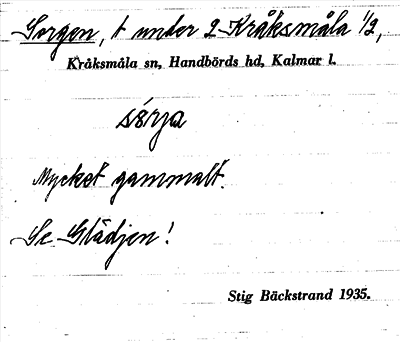 Sorgen, t under 2 Kråksmåla 1/2,
Kråksmåla sn, Handbörds hd, Kalmar l.
sórja
Mycket gammalt.
Se Glädjen!
Stig Bäckstrand 1935.